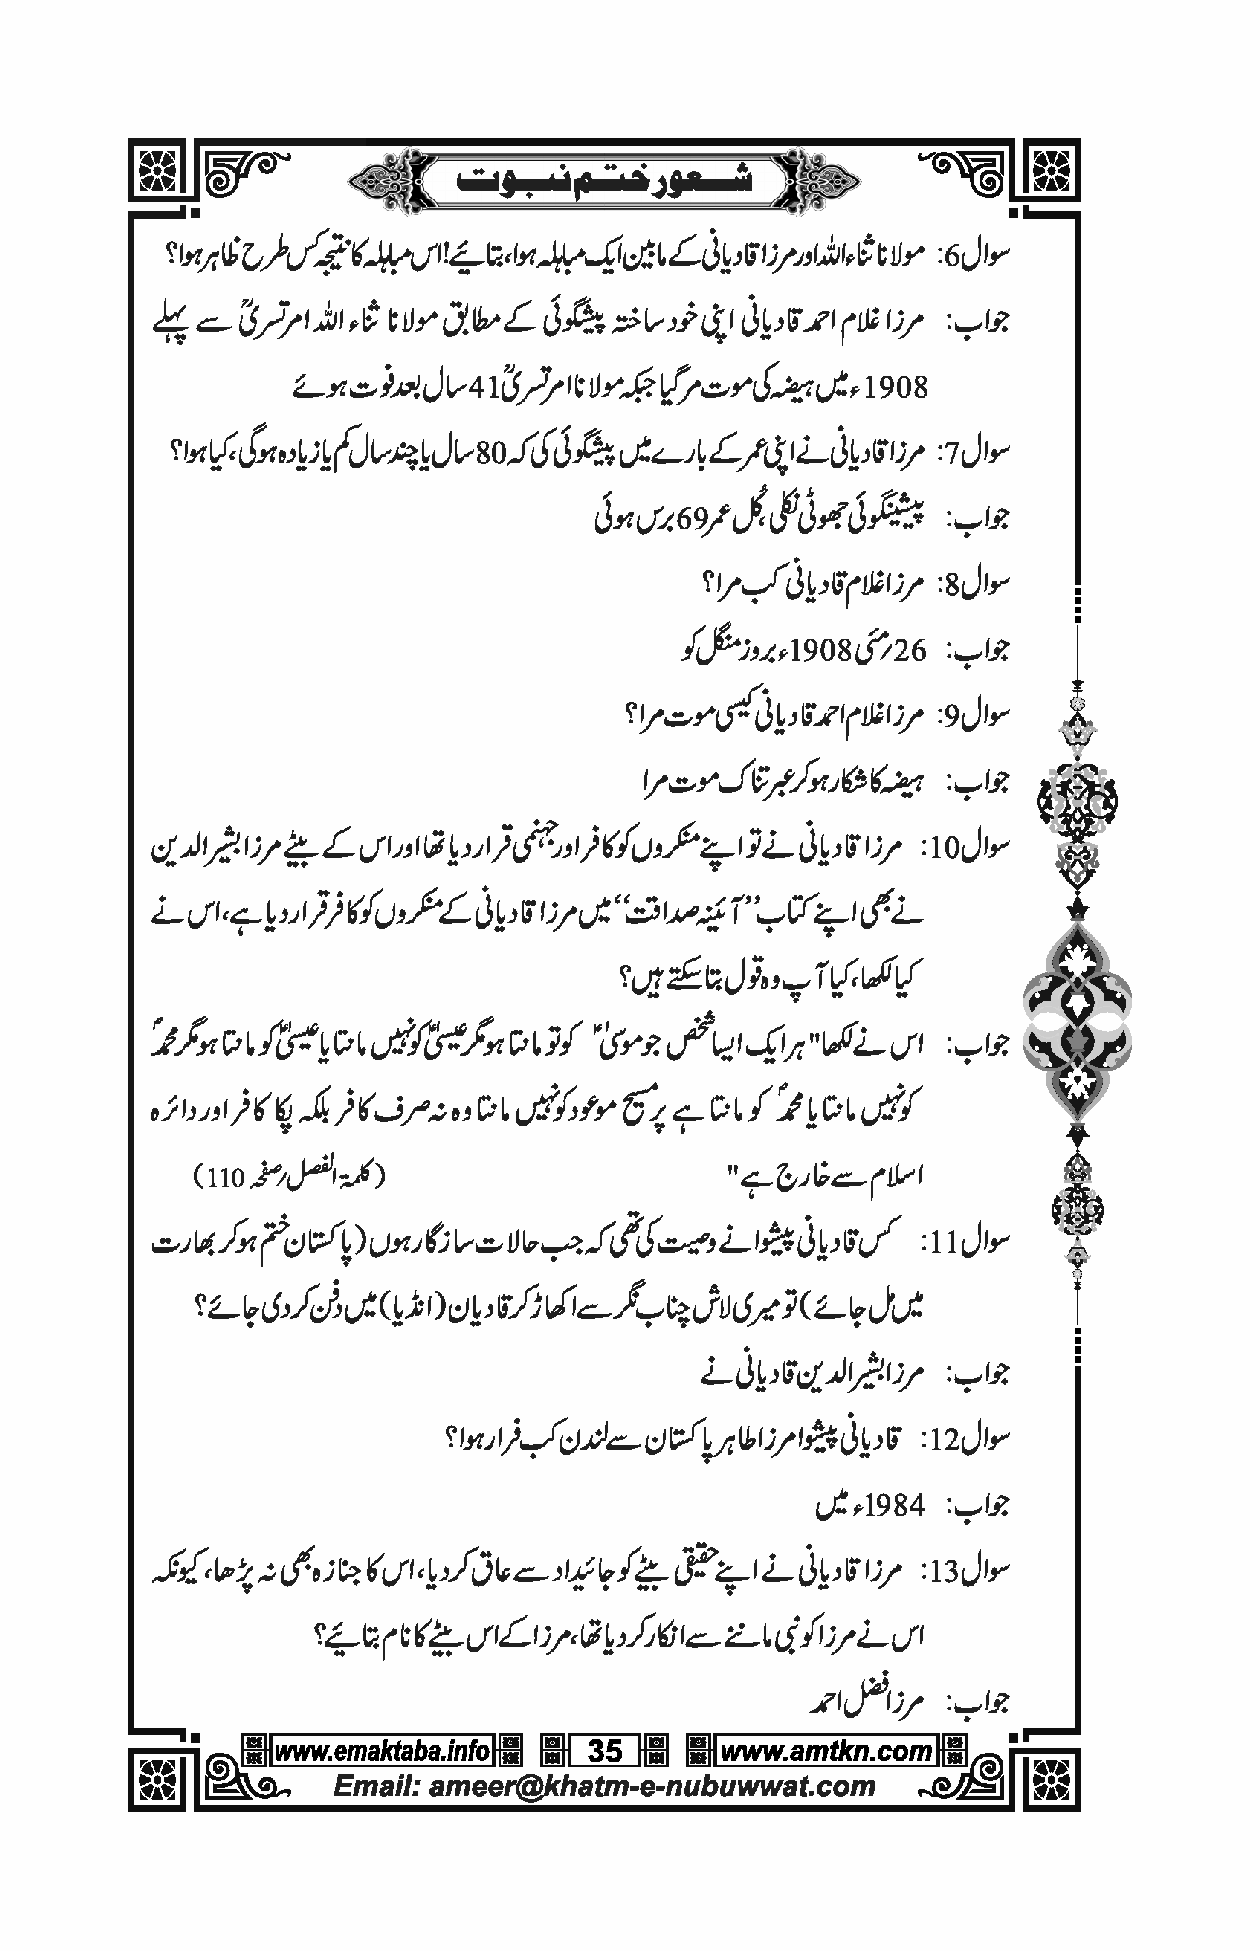 شعور ختم نبوت
سوال6: مولانا ثناء اللہ اور مرزا قادیانی کے مابین ایک مباہلہ ہوا، بتایئے! اس مباہلہ کا نتیجہ کس طرح ظاہر ہوا؟
جواب: مرزا غلام احمد قادیانی اپنی خود ساختہ پیشگوئی کے مطابق مولانا ثناء اللہ امرتسریؒ سے پہلے
1908ء میں ہیضہ کی موت مر گیا جبکہ مولانا امرتسریؒ 41 سال بعد فوت ہوئے
سوال7: مرزا قادیانی نے اپنی عمر کے بارے میں پیشگوئی کی کہ 80 سال یا چند سال کم یا زیادہ ہوگی، کیا ہوا؟
جواب: پیشینگوئی جھوٹی نکلی، کُل عمر 69 برس ہوئی
سوال8: مرزا غلام قادیانی کب مرا؟
جواب: 26؍مئی 1908ء بروز منگل کو
سوال9: مرزا غلام احمد قادیانی کیسی موت مرا؟
جواب: ہیضہ کا شکار ہو کر عبرتناک موت مرا
سوال10: مرزا قادیانی نے تو اپنے منکروں کو کافر اور جہنمی قرار دیا تھا اور اس کے بیٹے مرزا بشیر الدین
نے بھی اپنے کتاب ’’آئینہ صداقت‘‘ میں مرزا قادیانی کے منکروں کو کافر قرار دیا ہے، اس نے
کیا لکھا، کیا آپ وہ قول بتا سکتے ہیں؟
جواب: اس نے لکھا "ہر ایک ایسا شخص جو موسیٰ ؑ کو تو مانتا ہو مگر عیسیٰ ؑ کو نہیں مانتا یا عیسیٰ ؑ کو مانتا ہو مگر محمدؐ
کو نہیں مانتا یا محمدؐ کو مانتا ہے پر مسیح موعود کو نہیں مانتا وہ نہ صرف کافر بلکہ پکا کافر اور دائرہ
اسلام سے خارج ہے" (کلمۃ الفصل؍صفحہ 110)
سوال11: کس قادیانی پیشوا نے وصیت کی تھی کہ جب حالات سازگار ہوں (پاکستان ختم ہو کر بھارت
میں مل جائے) تو میری لاش چناب نگر سے اکھاڑ کر قادیان (انڈیا) میں دفن کر دی جائے؟
جواب: مرزا بشیر الدین قادیانی نے
سوال12: قادیانی پیشوا مرزا طاہر پاکستان سے لندن کب فرار ہوا؟
جواب: 1984ء میں
سوال13: مرزا قادیانی نے اپنے حقیقی بیٹے کو جائیداد سے عاق کر دیا، اس کا جنازہ بھی نہ پڑھا، کیونکہ
اس نے مرزا کو نبی ماننے سے انکار کر دیا تھا، مرزا کے اس بیٹے کا نام بتایئے؟
جواب: مرزا فضل احمد
www.emaktaba.info 35 www.amtkn.com
Email: ameer@khatm-e-nubuwwat.com